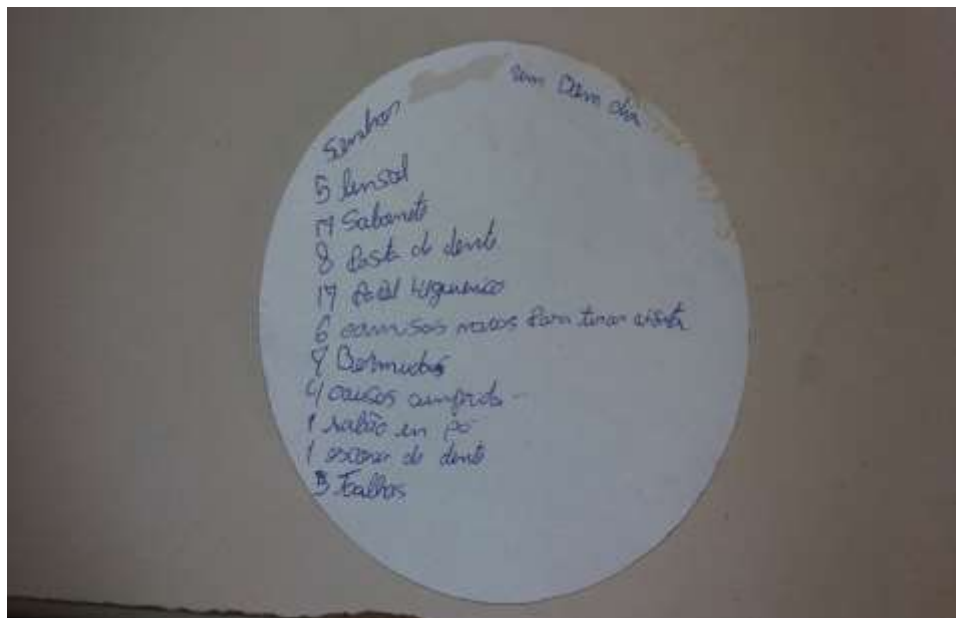 Senhor um Bom dia
5 lensol
17 Sabonete
8 Pasta de dente
17 Papel Higuenico
6 camisas para tirar visita
9 Bermudas
4 causas cumprida
1 sabão en pó
1 escova de dente
5 Toalhas